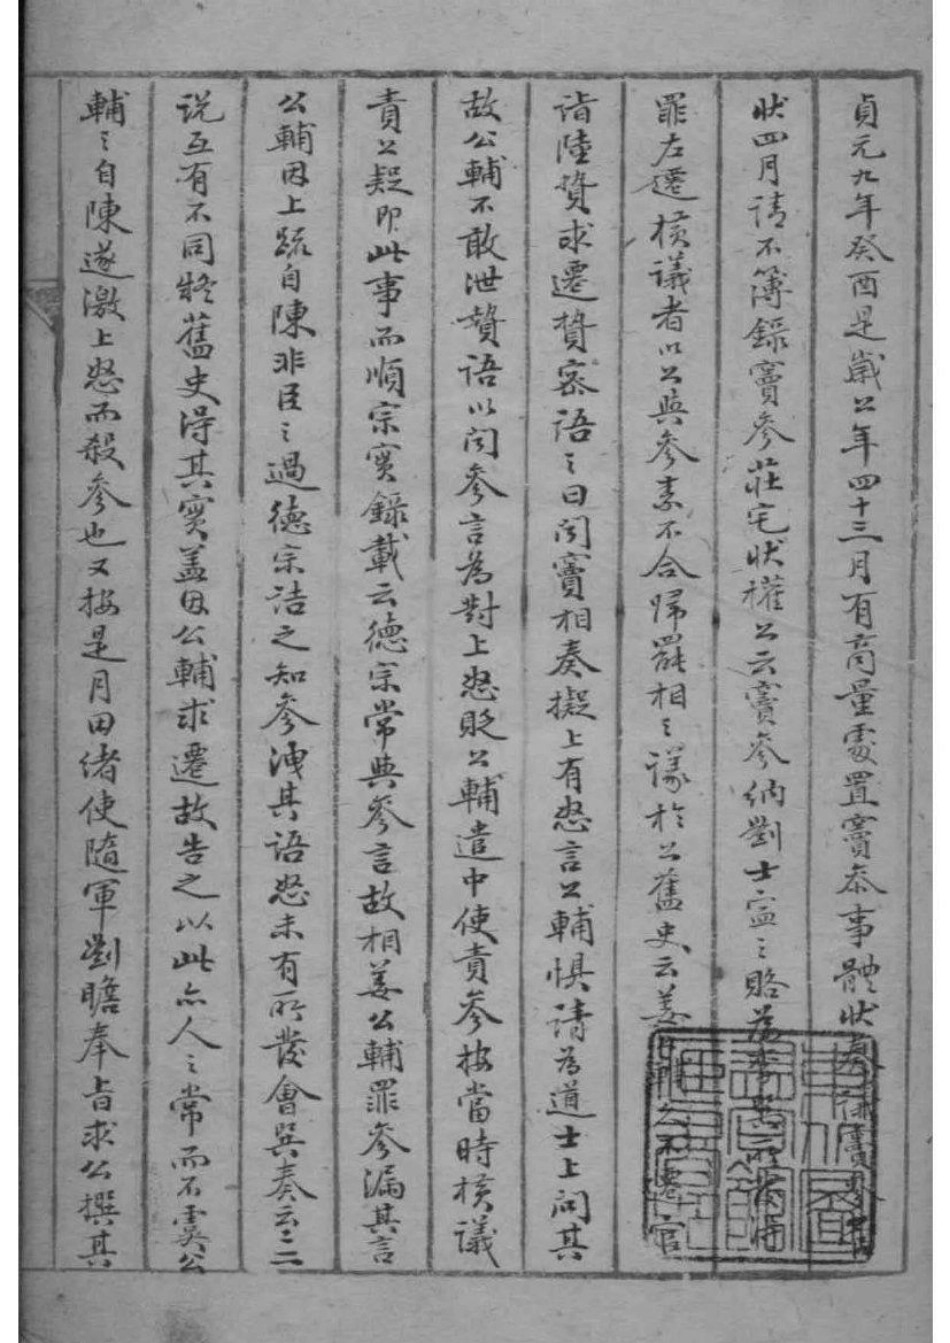 貞元九年癸酉是歲公年四十三月有商量處置竇叅事體狀奏議竇參
狀四月請不簿錄竇參莊宅狀權公云竇參納劉士寧之賂為李巽所發得
罪左遷橫議者以公與參素不合歸罷相之議於公舊史云姜公輔久不遷官
詣陸贄求遷贄密語之曰聞竇相奏擬上有怒言公輔懼請為道士上問其
故公輔不敢泄贄語以聞參言為對上怒貶公輔遣中使責參按當時橫議
責公疑即此事而順宗實錄載云德宗常與參言故相姜公輔罪參漏其言
公輔因上疏自陳非臣之過德宗詰之知參洩其語怒未有所發會巽奏云云二
說互有不同然舊史得其實盖因公輔求遷故告之以此亦人之常而不虞公
輔之自陳遂激上怒而殺參也又按是月田緒使隨軍劉瞻奉旨求公撰其